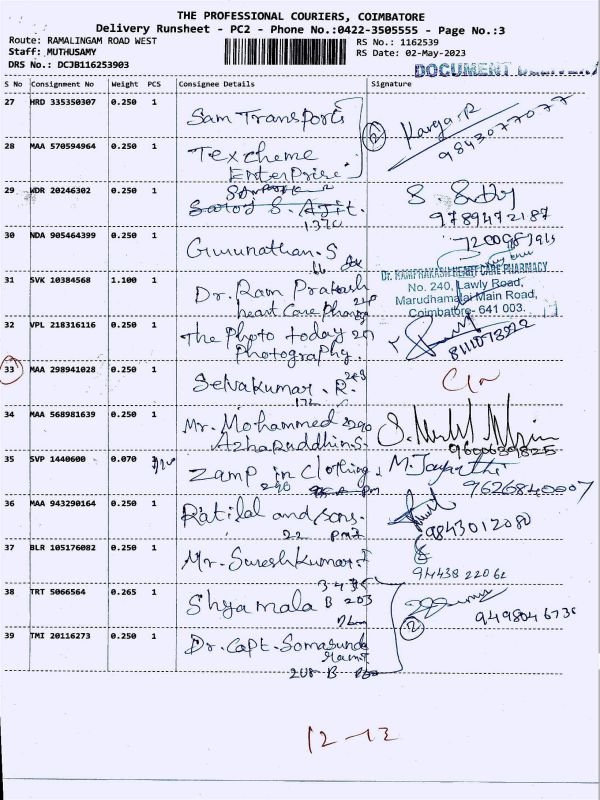 THE PROFESSIONAL COURIERS, COIMBATORE
Delivery Runsheet - PC2 - Phone No.:0422-3505555 - Page No.:3
Route: RAMALINGAM ROAD WEST
RS No.: 1162539
Staff: MUTHUSAMY
RS Date: 02-May-2023
DRS No.: DCJB116253903
DOCUMENT DELIVERY
S No Consignment No Weight PCS Consignee Details Signature
27 HRD 335350307 0.250 1 Sam Transports
Karga.R
9843077077
28 MAA 570594964 0.250 1 Texcheme
Enterprise
29 WDR 20246302 0.250 1 Saroj S. Ajit.
1370
9789472187
30 NDA 905464399 0.250 1 Gurunathan.S
31 SVK 10384568 1.100 1 Dr. Ram Prakash
heart Care
Dr. RAMPRAKASH HEART CARE PHARMACY
No. 240, Lawly Road,
Marudhamalai Main Road,
Coimbatore- 641 003.
32 VPL 218316116 0.250 1 The Photo today
Photography.
33 MAA 298941028 0.250 1 Selvakumar. R.
34 MAA 568981639 0.250 1 Mr. Mohammed
Azharuddhin.S.
9600689825
35 SVP 1440600 0.070 1 Zamp in Clothing
M. Jayanthi
9626840007
36 MAA 943290164 0.250 1 Ratilal and sons.
22
9843012080
37 BLR 105176082 0.250 1 Mr. Sureshkumar.
94438 22062
38 TRT 5066564 0.265 1 Shyamala B 203
9498046736
39 TMI 20116273 0.250 1 Dr. Capt. Somasunda
208 B
12-13